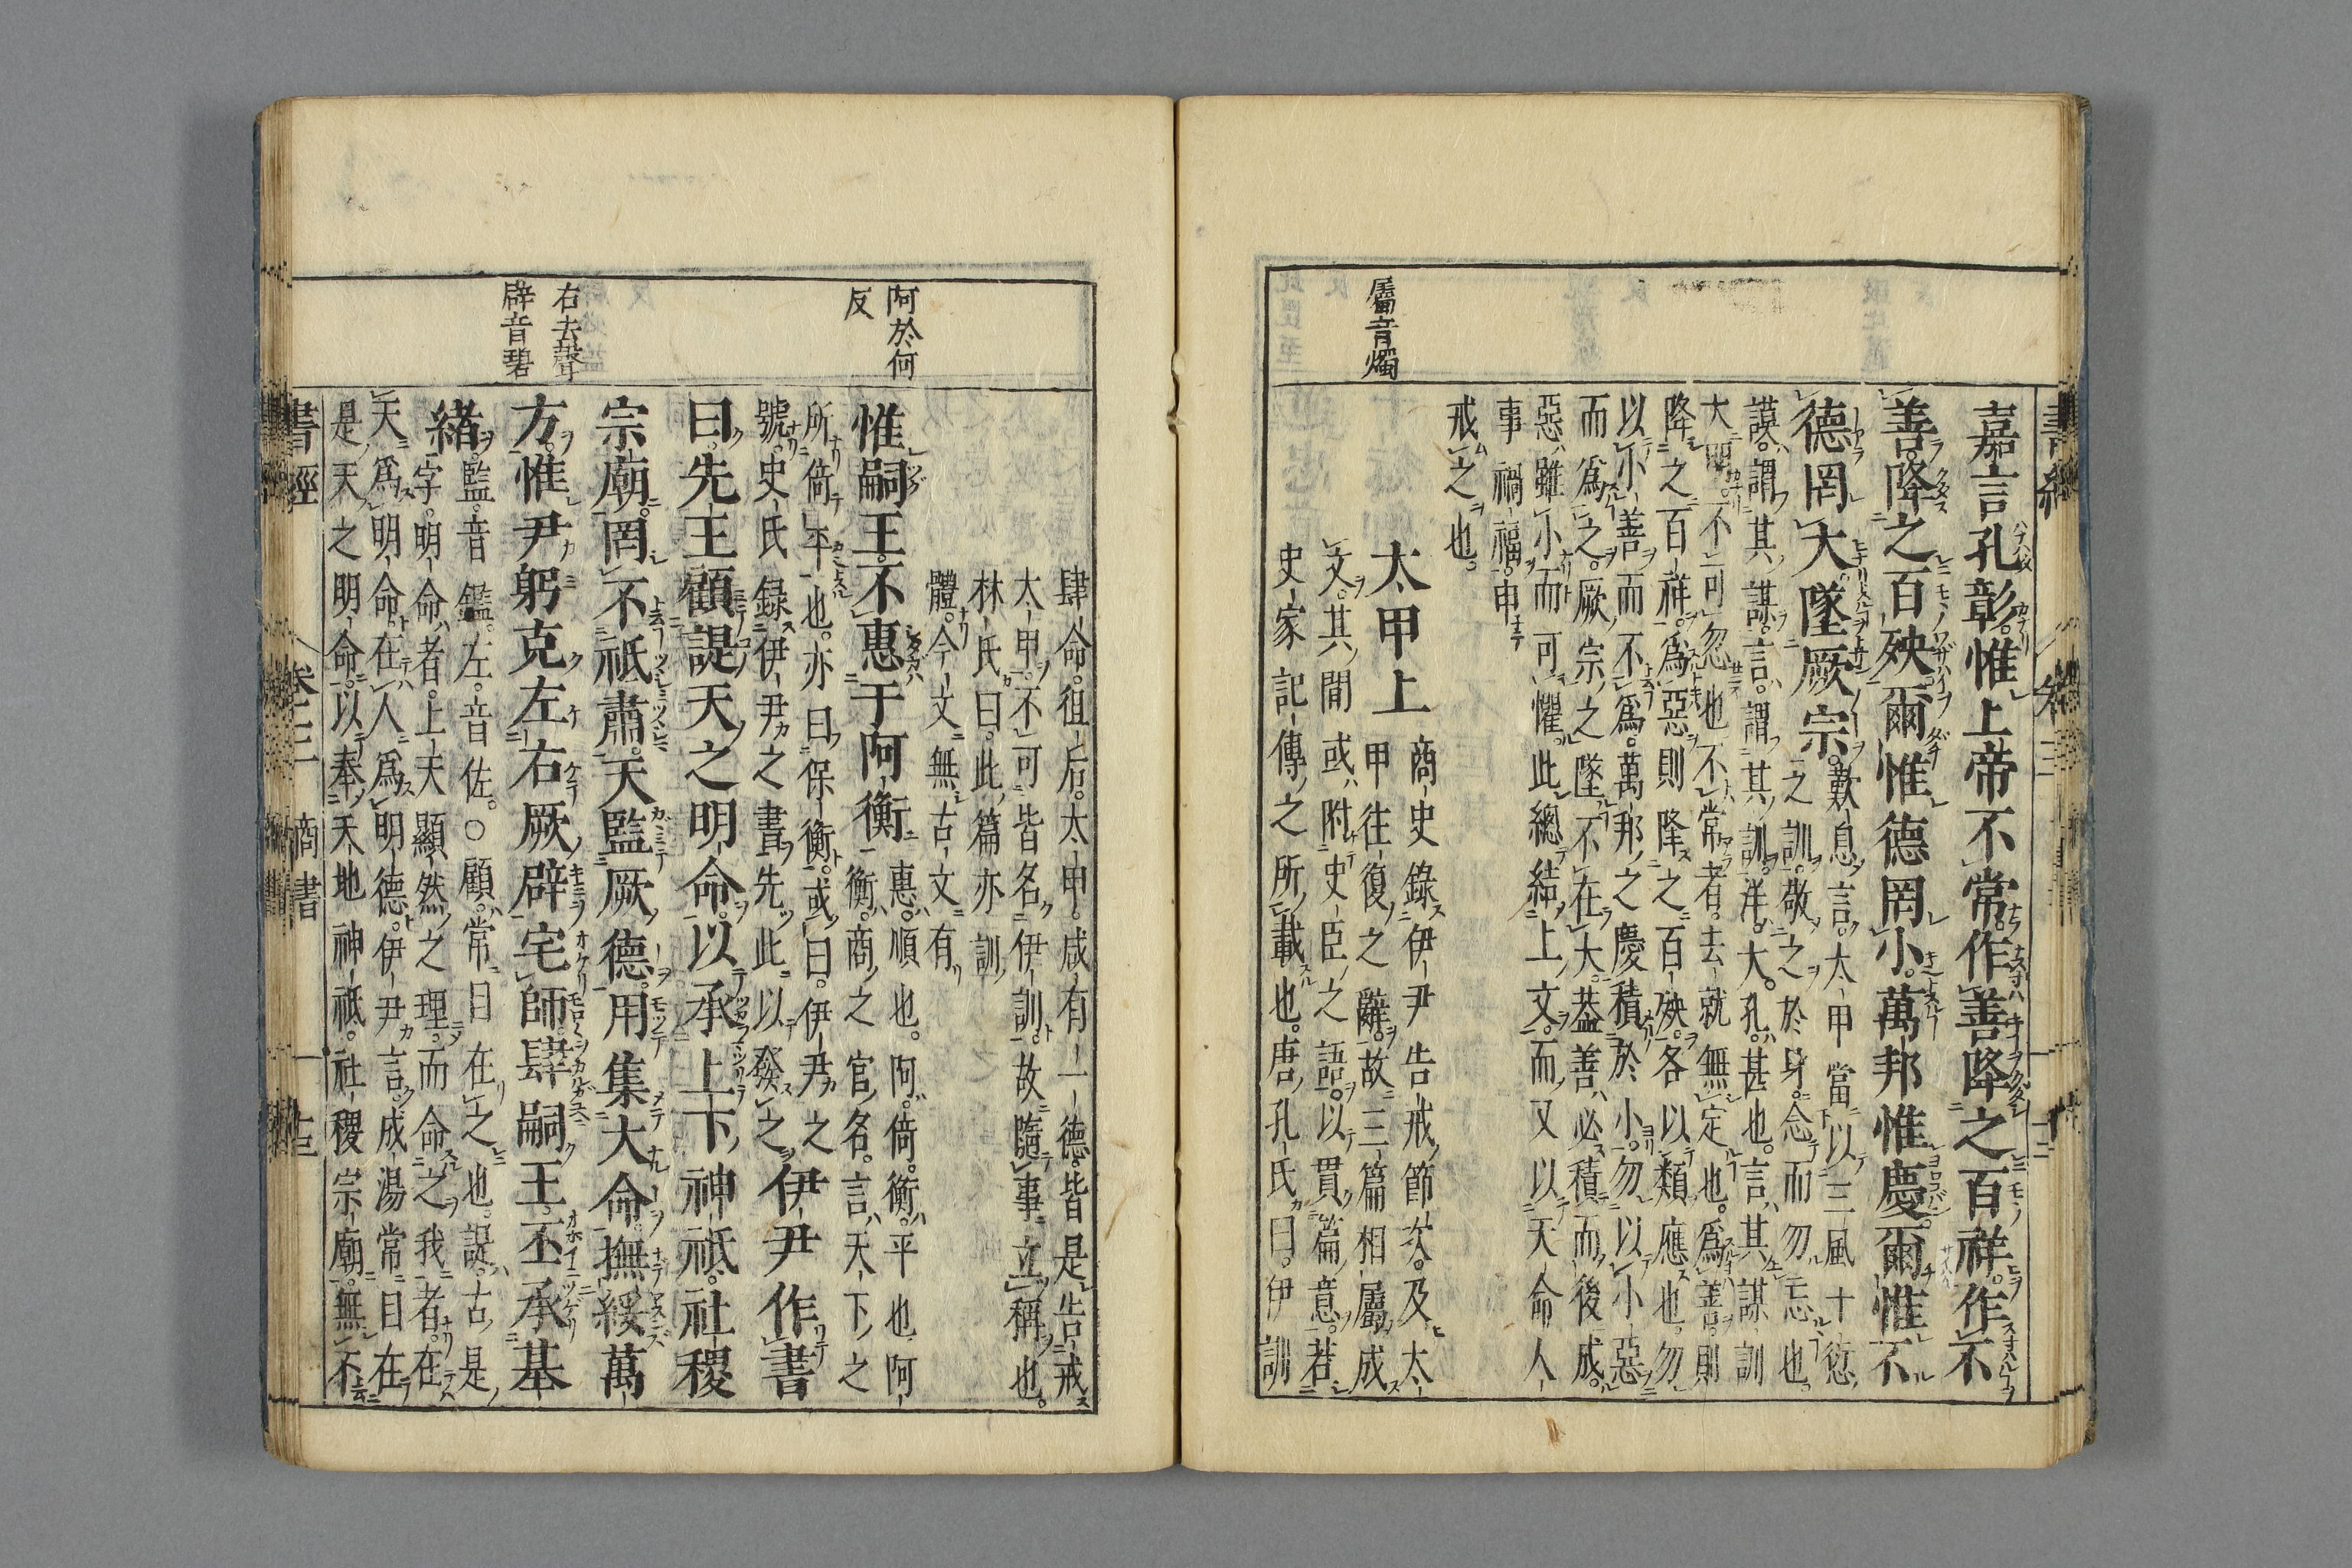 屬音燭
嘉言孔彰惟上帝不常作善降之百祥作不
善降之百殃爾惟德罔小萬邦惟慶爾惟不
德罔大墜厥宗歎息言太甲當以三風十愆
之訓敬之於身念而勿忘也
謨謂其謀言謂其訓洋大孔甚也言其謀訓
大明不可忽也不常者去就無定也為善則
降之百祥為惡則降之百殃各以類應也勿
以小善而不為萬邦之慶積於小勿以小惡
而為之厥宗之墜不在大葢善必積而後成
惡雖小而可懼此總結上文而又以天命人
事禍福申
戒之也
太甲上
商史錄伊尹告戒節次及太
甲往復之辭故三篇相屬成
文其間或附史臣之語以貫篇意若
史家記傳之所載也唐孔氏曰伊訓
肆命徂后太甲咸有一德皆是告戒
太甲不可皆名伊訓故隨事立稱也
林氏曰此篇亦訓
體今文無古文有
阿於何
反
右去聲
辟音碧
惟嗣王不惠于阿衡
惠順也阿倚衡平也阿
衡商之官名言天下之
所倚平也亦曰保衡或曰伊尹之
號史氏錄伊尹之書先此以發之
伊尹作書
曰先王顧諟天之明命以承上下神祇社稷
宗廟罔不祇肅天監厥德用集大命撫綏萬
方惟尹躬克左右厥辟宅師肆嗣王丕承基
緒
監音鑑左音佐○顧常目在之也諟古是
字明命者上天顯然之理而命之我者在
天為明命在人為明德伊尹言成湯常目在
是天之明命以奉天地神祇社稷宗廟無不
書經
卷三
商書
十三